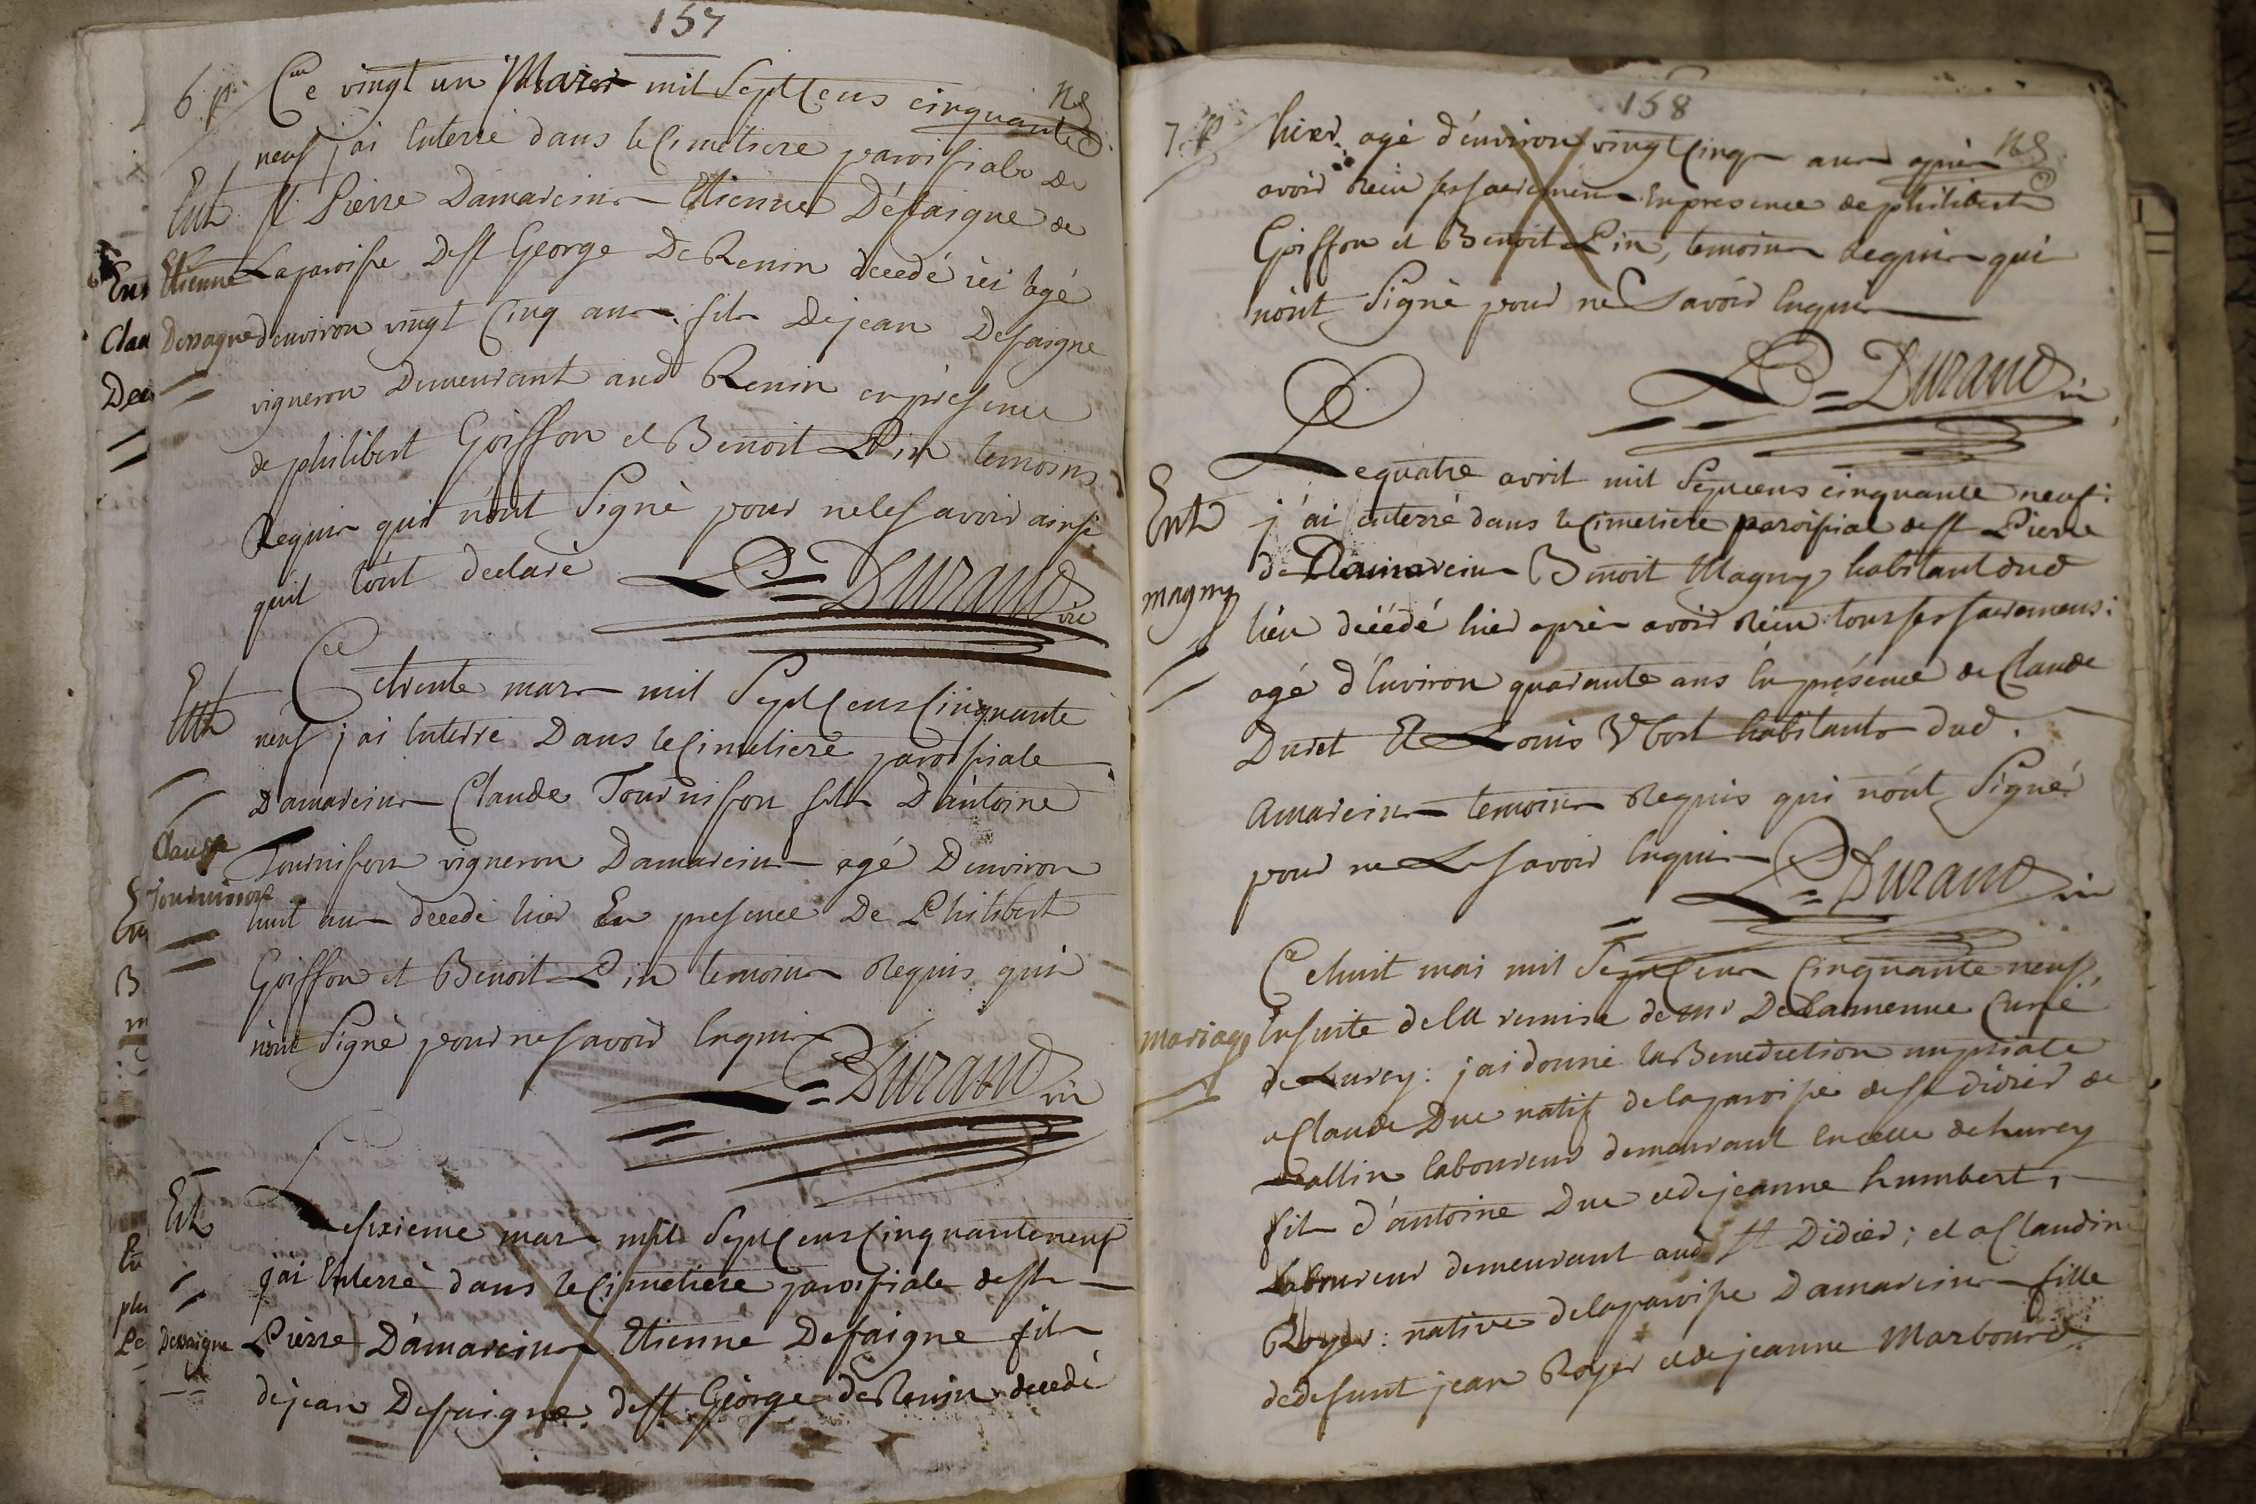 157
6 p.
Ce vingt un Mars mil Sept Cens cinquante
neuf j'ai Enterré dans le Cimetiere paroisiale de
Ent St Pierre Damareins Etienne Désaigne de
Etienne La paroisse De St George De Renin decedé ici agé
Dessagne d'environ vingt Cinq ans fils De jean Desaigne
vigneron Demeurant aud Renin en présence
de philibert Goiffon et Benoit Pin temoins
Requis qui n'ont Signé pour ne le savoir ainsi
quil l'ont declaré
Durand vic
Ent
Ce trente mars mil Sept Cens Cinquante
neuf j'ai Enterré Dans le Cimetiere paroisiale
Damareins Claude Tournison fils D'antoine
Claude
Tournison vigneron Damareins agé D'environ
Tournison
huit ans decedé hier En presence De Philibert
Goiffon et Benoit Pin temoins Requis qui
n'ont Signé pour ne savoir Enquis
Durand vic
Ent
Le sixieme mars mil Sept Cens Cinquante neuf
j'ai Enterré dans le Cimetiere paroisiale de St
Dessaigne Pierre D'amareins Etienne Desaigne fils
de jean Desaigne de St George de Renin decedé
158
7. p.
hier agé d'environ vingt Cinq ans après
avoir Reçu ses sacremens En presence de philibert
Goiffon et Benoit Pin, temoins Requis qui
n'ont Signé pour ne Savoir Enquis
Durand vic
Le quatre avril mil Sept cens cinquante neuf:
Ent j'ai enterré dans le Cimetiere paroisial de St Pierre
de Damareins Benoit Magny habitant dud
magny
lieu décédé hier après avoir Reçu tous ses sacremens:
agé d'Environ quarante ans En présence de Claude
Duret Et Louis Vbost habitants dud.
Amareins temoins Requis qui n'ont Signé
pour ne Le savoir Enquis
Durand vic
Ce huit mai mil Sept Cens Cinquante neuf,
mariage Ensuite de la remise de Mr Delamenue Curé
de Lurcy: j'ai donné la Benediction nuptiale
a Claude Duc natif de la paroisse de St didier de
vallin laboureur demeurant en celle de hurcy
fils d'antoine Duc et de jeanne humbert,
Laboureur demeurant aud St Didier; et a Claudine
Royer: native de la paroisse Damareins fille
de defunt jean Royer et de jeanne Marbourd